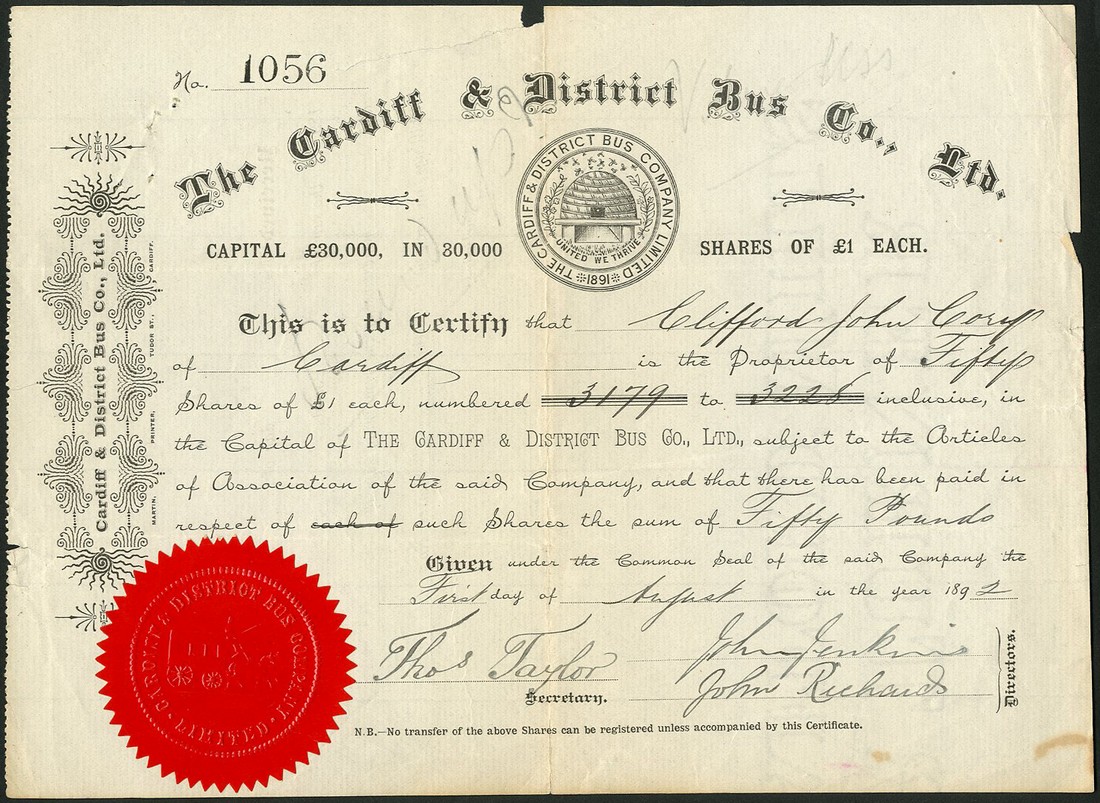 No. 1056
The Cardiff & District Bus Co., Ltd.
THE CARDIFF & DISTRICT BUS COMPANY LIMITED
UNITED WE THRIVE
1891
CAPITAL £30,000, IN 30,000 SHARES OF £1 EACH.
This is to Certify that Clifford John Cory
of Cardiff is the Proprietor of Fifty
Shares of £1 each, numbered 3179 to 3228 inclusive, in
the Capital of THE CARDIFF & DISTRICT BUS CO., LTD., subject to the Articles
of Association of the said Company, and that there has been paid in
respect of each of such Shares the sum of Fifty Pounds
Given under the Common Seal of the said Company the
First day of August in the year 1892
Thos Taylor
Secretary.
John Jenkins
John Richards
Directors.
N.B.—No transfer of the above Shares can be registered unless accompanied by this Certificate.
Cardiff & District Bus Co., Ltd.
MARTIN, PRINTER, TUDOR ST., CARDIFF.
CARDIFF & DISTRICT BUS COMPANY LIMITED